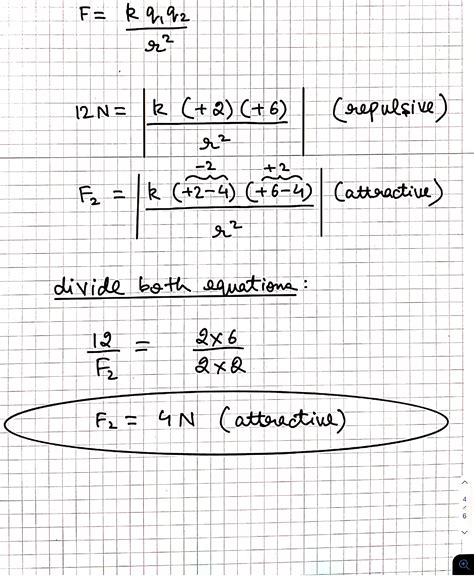 F = k q₁q₂ / r²
12 N = | k (+2) (+6) / r² | (repulsive)
-2 +2
F₂ = | k (+2-4) (+6-4) / r² | (attractive)
divide both equations :
12 / F₂ = 2×6 / 2×2
F₂ = 4N (attractive)
4
6